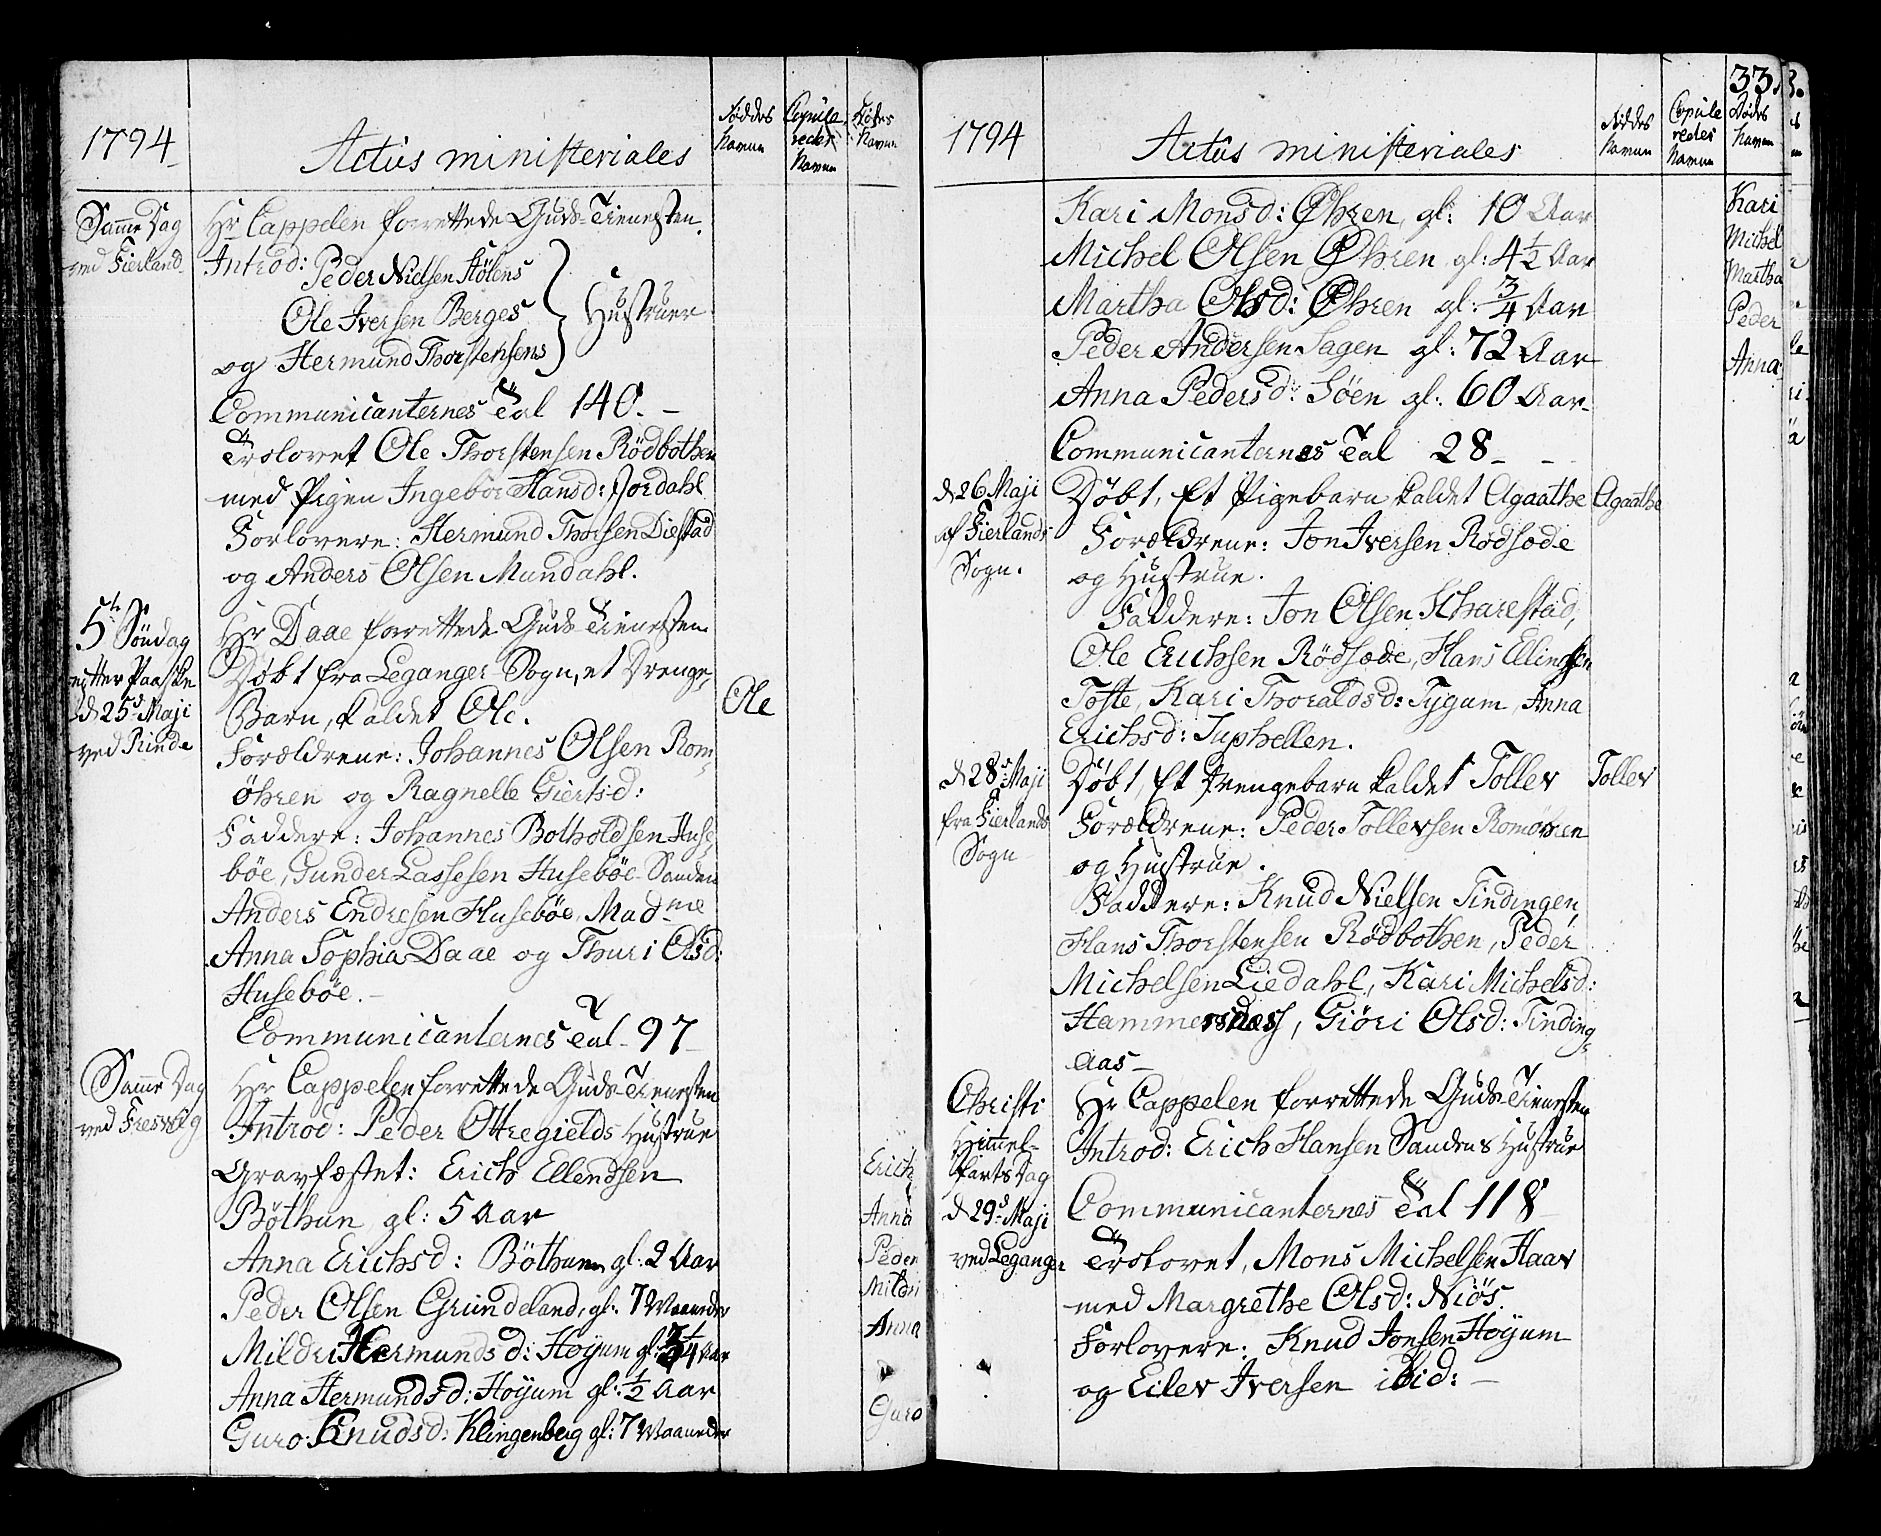 1794
Actus ministeriales
Föddes Navne
Copuleredes Navne
Dödes Navne
Samme Dag
ved Fierland
Hr Cappelen forrettede Guds-Tienesten.
Introd: Peder Nielsen Stölens
Ole Iversen Berges
og Hermund Thorstensens
Hustruer
Communicanternes Tal 140.-
Trolovet Ole Thorstensen Rödbothen
med Pigen Ingebor Hansd: Jordahl
Forlovere: Hermund Thorsen Diestad
og Anders Olsen Mundahl.
5te Söndag
efter Paaske
d 25de Maji
ved Rinde
Hr Daae forrettede Guds-Tienesten
Döbt fra Leganger Sogn, et Drenge-
Barn, kaldet Ole.
Ole
Forældrene: Johannes Olsen Rom-
öhren og Ragnelle Giertsd:
Faddere: Johannes Botholdsen Huse-
böe, Gunder Lassesen Huseböe-Sanden
Anders Endresen Huseböe, Mad-me
Anna Sophia Daae og Thuri Olsd:
Huseböe.-
Communicanternes Tal 97
Samme Dag
ved Fresvig
Hr Cappelen forrettede Guds-Tienesten
Introd: Peder Ottregields Hustrue
Gravfæstet: Erich Ellendsen
Böthun gl: 5 Aar
Erich
Anna Erichsd: Böthun gl: 2 Aar
Anna
Peder Olsen Grundeland, gl: 7 Maaneder
Peder
Mildri Hermundsd: Hoyum gl: Aar
Mildri
Anna Hermundsd: Hoyum gl: ½ Aar
Anna
Guro Knudsd: Klingenberg gl: 7 Maaneder
Guro
33.
1794
Actus ministeriales
Föddes Navne
Copuleredes Navne
Dödes Navne
Kari Monsd: Öhren, gl: 10 Aar
Kari
Michel Olsen Öhren gl: 4½ Aar
Michel
Martha Olsd: Öhren gl: ¾ Aar
Martha
Peder Andersen Sagen gl: 72 Aar
Peder
Anna Pedersd: Söen gl: 60 Aar
Anna
Communicanternes Tal 28
d 26 Maji
af Fierlands
Sogn.
Döbt, Et Pigebarn kaldet Agaathe
Agaathe
Forældrene: Jon Iversen Rödsæde
og Hustrue.
Faddere: Jon Olsen Scharestad,
Ole Erichsen Rödsæde, Hans Ellingsen
Tofte, Kari Thoraldsd: Tygum, Anna
Erichsd: Suphellen.
d 28de Maji
fra Fierlands
Sogn
Döbt, Et Drengebarn kaldet Tollev
Tollev
Forældrene: Peder Tollevsen Romöhren
og Hustrue.
Faddere: Knud Nielsen Tindingen,
Hans Thorstensen Rödbothen, Peder
Michelsen Liedahl, Kari Michelsd:
Hammersnæs, Giöri Olsd: Tinding-
aas
Christi
Himmel-
farts Dag
d 29de Maji
ved Leganger
Hr Cappelen forrettede Guds-Tienesten
Introd: Erich Hansen Sandens Hustrue
Communicanternes Tal 118
Trolovet, Mons Michelsen Haav
med Margrethe Olsd: Niös.
Forlovere: Knud Jonsen Hoyum
og Eilev Iversen ibid: